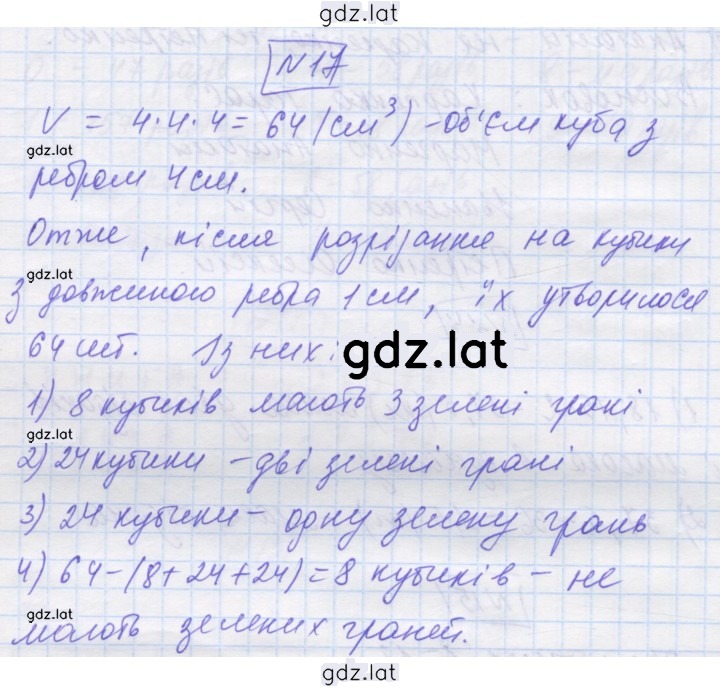 gdz.lat
N17
V = 4·4·4 = 64 (см³) - об'єм куба з
gdz.lat
ребром 4 см.
Отже, після розрізання на кубики
gdz.lat
з довжиною ребра 1 см, їх утворилося
64 шт. Із них:
gdz.lat
gdz.lat
1) 8 кубиків мають 3 зелені грані
gdz.lat
2) 24 кубики - дві зелені грані
3) 24 кубики - одну зелену грань
gdz.lat
4) 64-(8+24+24)=8 кубиків - не
gdz.lat
мають зелених граней.
gdz.lat